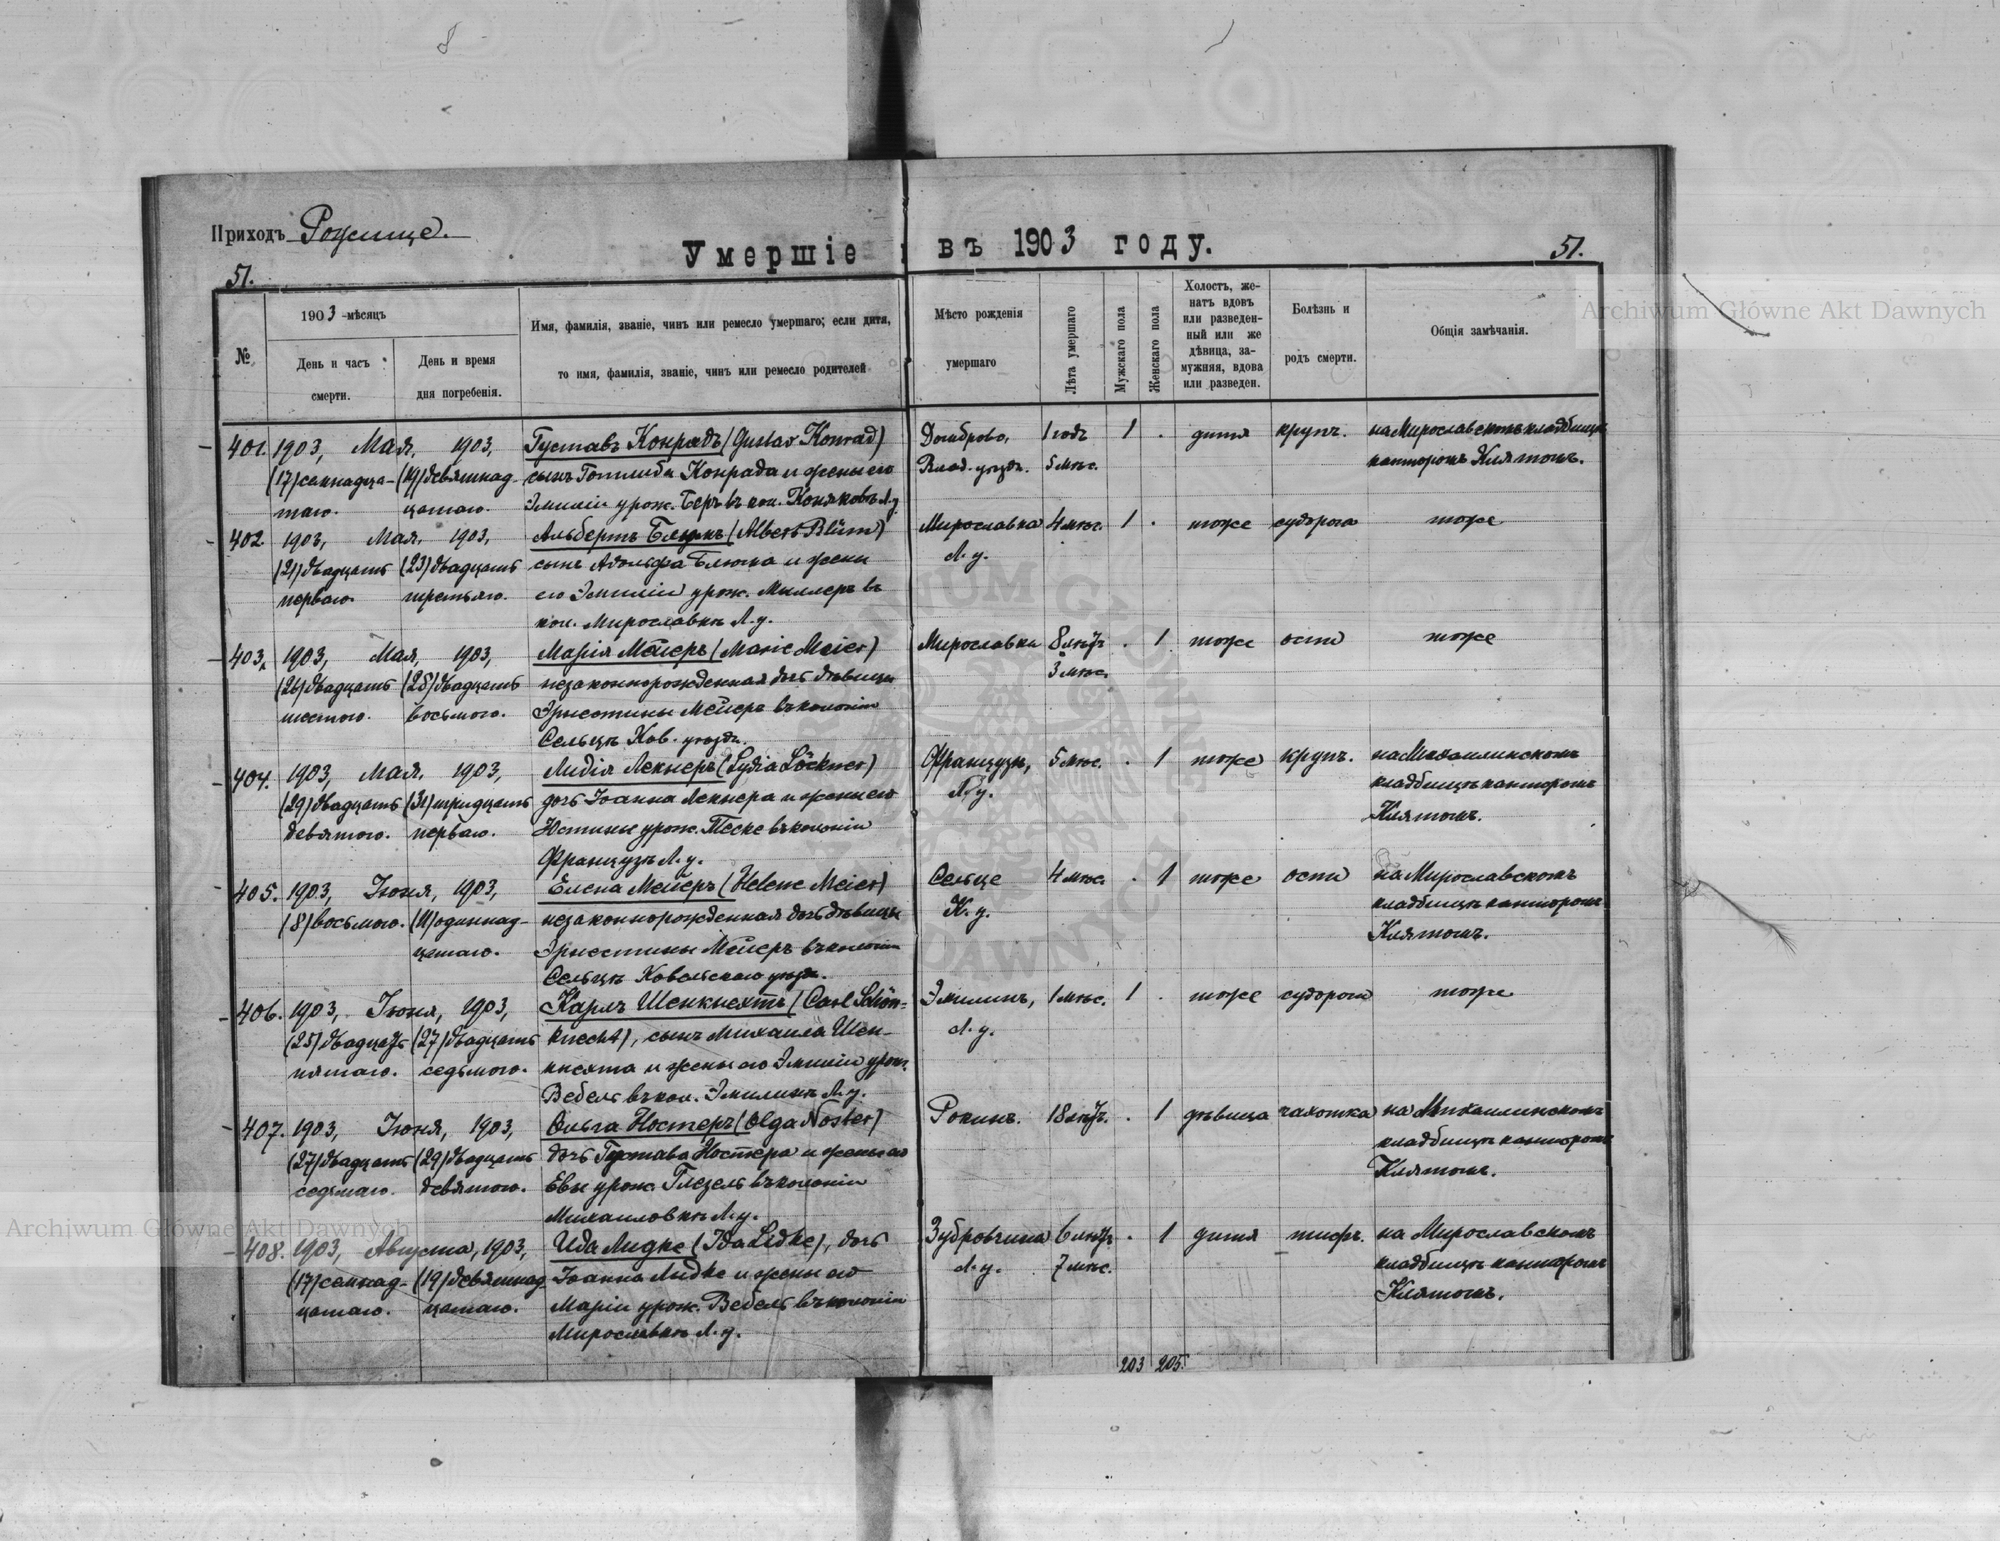 Приходъ Рожище.
Умершіе въ 1903 году.
51.
51.
№
1903-мѣсяцъ
День и часъ
смерти.
День и время
дня погребенія.
Имя, фамилія, званіе, чинъ или ремесло умершаго; если дитя,
то имя, фамилія, званіе, чинъ или ремесло родителей
Мѣсто рожденія
умершаго
Лѣта умершаго
Мужскаго пола
Женскаго пола
Холостъ, же-
натъ вдовъ
или разведен-
ный или же
дѣвица, за-
мужняя, вдова
или разведен.
Болѣзнь и
родъ смерти.
Общія замѣчанія.
401. 1903, Мая, 1903, Густавъ Конрадъ (Gustav Konrad) Домброво, 1 годъ 1 . дитя крупъ. на Мирославскомъ кладбищѣ
(17) семнадца- (19) девятнад- сынъ Готлиба Конрада и жены его Влад. уѣзд. 5 мѣс. канторомъ Клятомъ.
таго. цатаго. Эмиліи урож. Беръ въ кол. Л.у.
402. 1903, Мая, 1903, Альбертъ Блюмъ (Albert Blüm) Мирославка 4 мѣс. 1 . тоже судорога тоже
(21) двадцать (23) двадцать сынъ Адольфа Блюма и жены Л. у.
перваго. третьяго. его Эмиліи урож. Миллеръ въ
кол. Мирославкѣ Л. у.
403. 1903, Мая, 1903, Марія Мейеръ (Marie Meier) Мирославка 8 лѣтъ . 1 тоже оспа тоже
(26) двадцать (28) двадцать незаконнорожденная дочь дѣвицы 3 мѣс.
шестого. восьмого. Эрнестины Мейеръ въ колоніи
Сельцѣ Ков. уѣзда.
404. 1903, Мая, 1903, Лидія Лекнеръ (Lydia Löckner) Французъ, 5 мѣс. . 1 тоже крупъ. на Михаилинскомъ
(29) двадцать (31) тридцать дочь Іоанна Лекнера и жены его Л. у. кладбищѣ канторомъ
девятого. перваго. Юстины урож. Теске въ колоніи Клятомъ.
Французъ Л. у.
405. 1903, Іюня, 1903, Елена Мейеръ (Helene Meier) Сельце 4 мѣс. . 1 тоже оспа на Мирославскомъ
(8) восьмого. (11) одиннад- незаконнорожденная дочь дѣвицы К. у. кладбищѣ канторомъ
цатаго. Эрнестины Мейеръ въ колоніи Клятомъ.
Сельцѣ Ковельскаго уѣзда.
406. 1903, Іюня, 1903, Карлъ Шенкнехтъ (Carl Schön- Эмилинъ, 1 мѣс. 1 . тоже судорога тоже
(25) двадцать (27) двадцать knecht), сынъ Михаила Шен- Л. у.
пятаго. седьмого. кнехта и жены его Эмиліи урож.
Вебель въ кол. Эмилинѣ Л. у.
407. 1903, Іюня, 1903, Ольга Ностеръ (Olga Noster) 18 лѣтъ. . 1 дѣвица чахотка на Михаилинскомъ
(27) двадцать (29) двадцать дочь Густава Ностера и жены его кладбищѣ канторомъ
седьмаго. девятого. Евы урож. Глезель въ колоніи Клятомъ.
Михаиловкѣ Л. у.
408. 1903, Августа, 1903, Ида Лидке (Ida Lidke), дочь Зубровчина 6 лѣтъ . 1 дитя тифъ. на Мирославскомъ
(17) семнад- (19) девятнад- Іоанна Лидке и жены его Л. у. 7 мѣс. кладбищѣ канторомъ
цатаго. цатаго. Маріи урож. Вебель въ колоніи Клятомъ.
Мирославкѣ Л. у.
203 205.
Archiwum Główne Akt Dawnych
Archiwum Główne Akt Dawnych